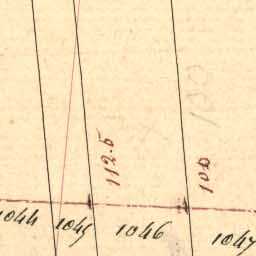 112.5
100
1044
1045
1046
1047